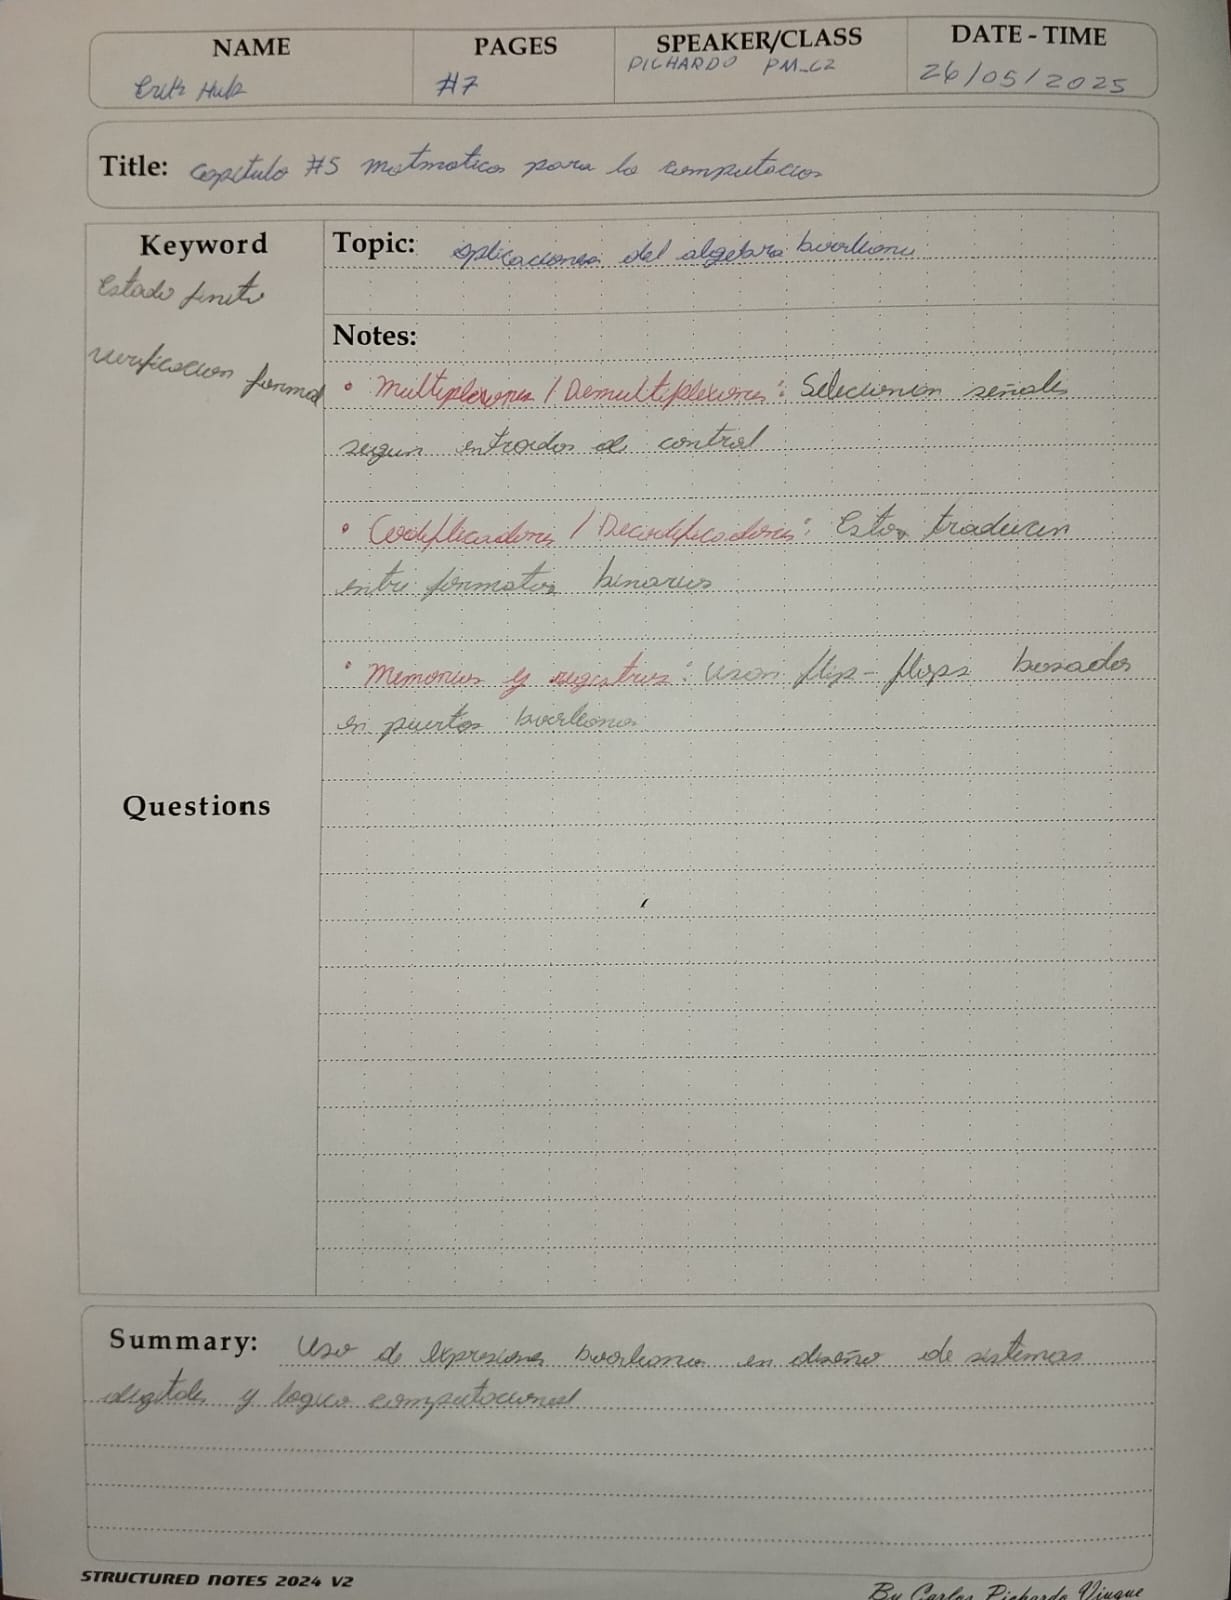 NAME PAGES SPEAKER/CLASS DATE - TIME
Erik Huk #7 PICHARDO PM_C2 26/05/2025
Title: Capitulo #5 Matmatica para la computacion
Keyword
Estado finito
verificacion formal
Topic: Aplicaciones del algebra booleana
Notes:
• Multiplexores / Demultiplexores: Selecionan señales
segun entradas de control
• Codificadores / Decodificadores: Estos traducen
entre formatos binarios
• Memorias y registros: Usan flip-flops basados
en puertas booleanas
Questions
Summary: Uso de expresiones booleanas en diseño de sistemas
digitales y logica computacional
STRUCTURED NOTES 2024 V2
By Carlos Pichardo Viuque